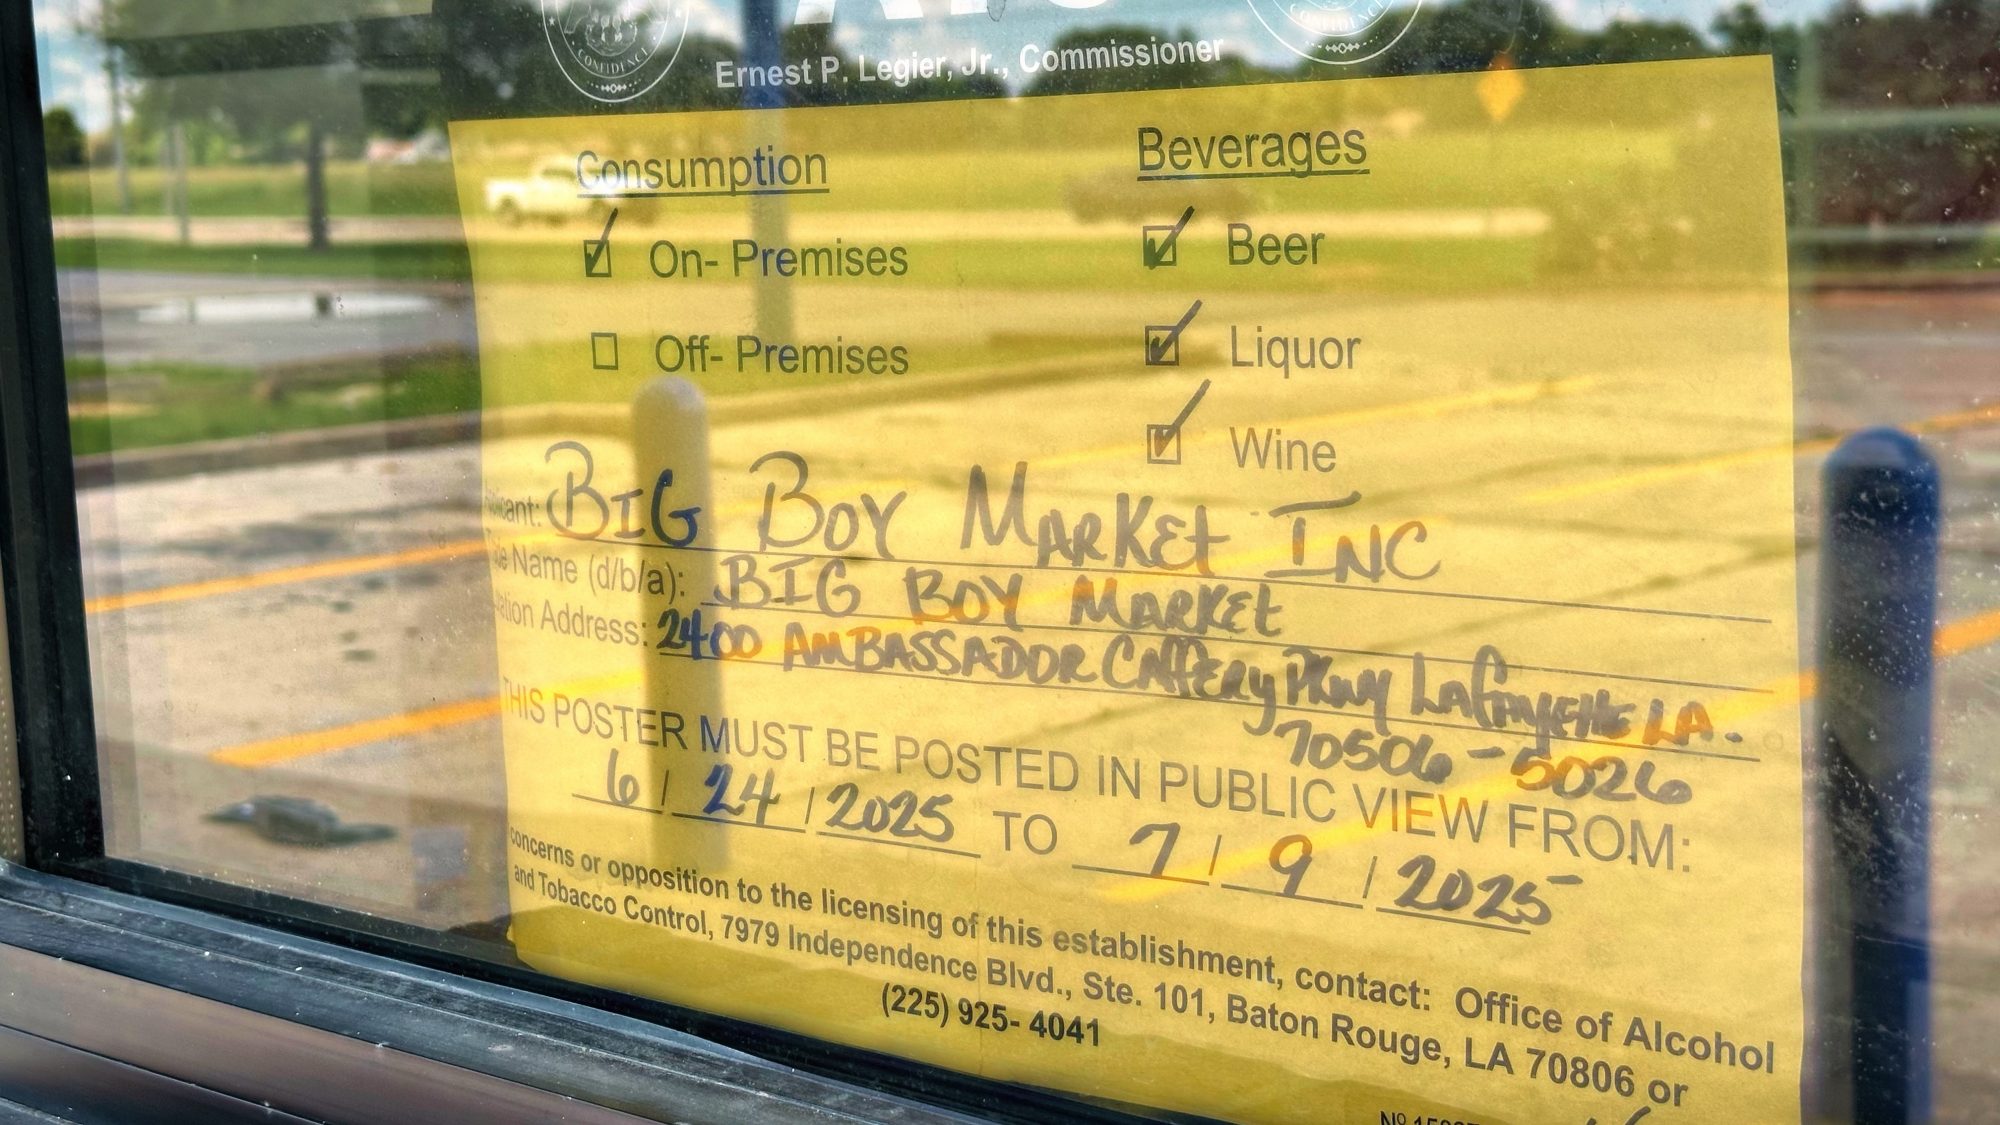 CONFIDENCE
CONFIDENCE
Ernest P. Legier, Jr., Commissioner
Consumption
Beverages
On- Premises
Beer
Off- Premises
Liquor
Wine
BIG BOY MARKET INC
Name (d/b/a): BIG BOY MARKET
Address: 2400 AMBASSADOR CAFFERY PKWY LAFAYETTE LA.
70506-5026
THIS POSTER MUST BE POSTED IN PUBLIC VIEW FROM:
6 / 24 / 2025 TO 7 / 9 / 2025
concerns or opposition to the licensing of this establishment, contact: Office of Alcohol
and Tobacco Control, 7979 Independence Blvd., Ste. 101, Baton Rouge, LA 70806 or
(225) 925- 4041